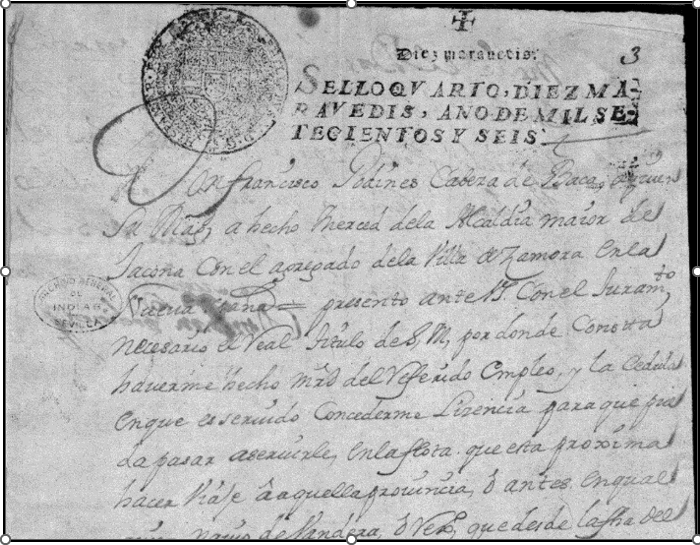 Diez marauetis.
3
SELLO QVARTO, DIEZ MA-
RAVEDIS, AÑO DE MIL SE-
TECIENTOS Y SEIS
Don francisco Cabeza de Baca, a quien
Su Mag, a hecho Merced dela Alcaldia maior de
Jacona Con el agregado dela Villa de Zamora en la
Nueva españa presento ante VS. Con el Juramto
necesario el Real titulo de S, M, por donde Consta
haverme hecho mrd del Referido empleo, y la Cedula
en que es servido Concederme Lizencia para que pue
da pasar a servirle, en la flota que esta proxima
hacer Viaje â aquella provincia, ô antes en qual
navio de Vandera, ô que desde la fha del
ARCHIVO GENERAL
DE
INDIAS
SEVILLA